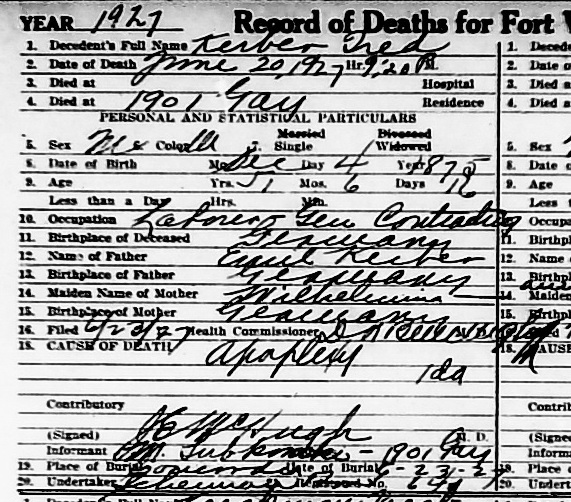 YEAR 1927 Record of Deaths for Fort W
1. Decedent's Full Name Kerber Fred
2. Date of Death June 20, 1927 Hr. 9:20 M.
3. Died at Hospital
4. Died at 1901 Gay Residence
PERSONAL AND STATISTICAL PARTICULARS
5. Sex M Color W 7. Married Single Divorced Widowed
8. Date of Birth Mo. Dec Day 4 Year 1875
9. Age Yrs. 51 Mos. 6 Days 16
Less than a Day Hrs. Min.
10. Occupation Laborer Gen Contracting
11. Birthplace of Deceased Germany
12. Name of Father Emil Kerber
13. Birthplace of Father Germany
14. Maiden Name of Mother Wilhelmina
15. Birthplace of Mother Germany
16. Filed 6/23/27 Health Commissioner
18. CAUSE OF DEATH Apoplexy
1da
Contributory
(Signed) J E McHugh M. D.
Informant M. - 1901 Gay
19. Place of Burial Date of Burial 6-23-27
20. Undertaker No.
1. Deced
2. Date o
3. Died a
4. Died a
5. Sex
8. Date o
9. Age
Less t
Occupa
11. Birthpl
12. Name o
13. Birthpl
14. Maiden
15. Birthpl
18. CAUSE
Contribu
(Signed)
Informa
19. Place o
20. Undert